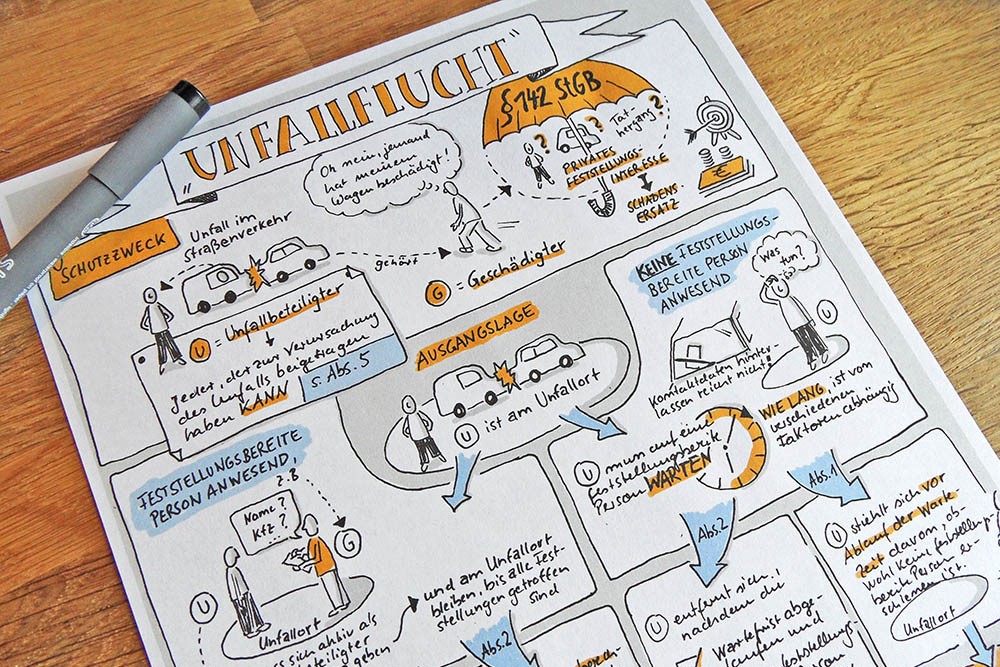 „UNFALLFLUCHT“
§ 142 StGB
? ? ? Tat
hergang?
PRIVATES
FESTSTELLUNGS-
INTERESSE
SCHADENS-
ERSATZ
€
Oh nein, jemand
hat meinem
Wagen beschädigt!
SCHUTZZWECK
Unfall im
Straßenverkehr
gehört
G = Geschädigter
U = Unfallbeteiligter
Jeder, der zur Verursachung
des Unfalls beigetragen
haben KANN
s. Abs. 5
AUSGANGSLAGE
U ist am Unfallort
KEINE FESTSTELLUNGS-
BEREITE PERSON
ANWESEND
Was
tun?
U
Kontaktdaten hinter-
lassen reicht nicht!
U muss auf eine
feststellungsbereite
Person WARTEN
WIE LANG ist von
verschiedenen
Faktoren abhängig
FESTSTELLUNGSBEREITE
PERSON ANWESEND,
z.B
Name?
Kfz?
G
U
Unfallort
sich aktiv als
geben
und am Unfallort
bleiben, bis alle Fest-
stellungen getroffen
sind
Abs.2
Abs.2
U entfernt sich,
nachdem die
Wartefrist abge-
laufen und
Abs.1
U stiehlt sich vor
Ablauf der Warte-
zeit davon, ob-
wohl keine feststellungs-
bereite Person er-
schienen ist.
Unfallort